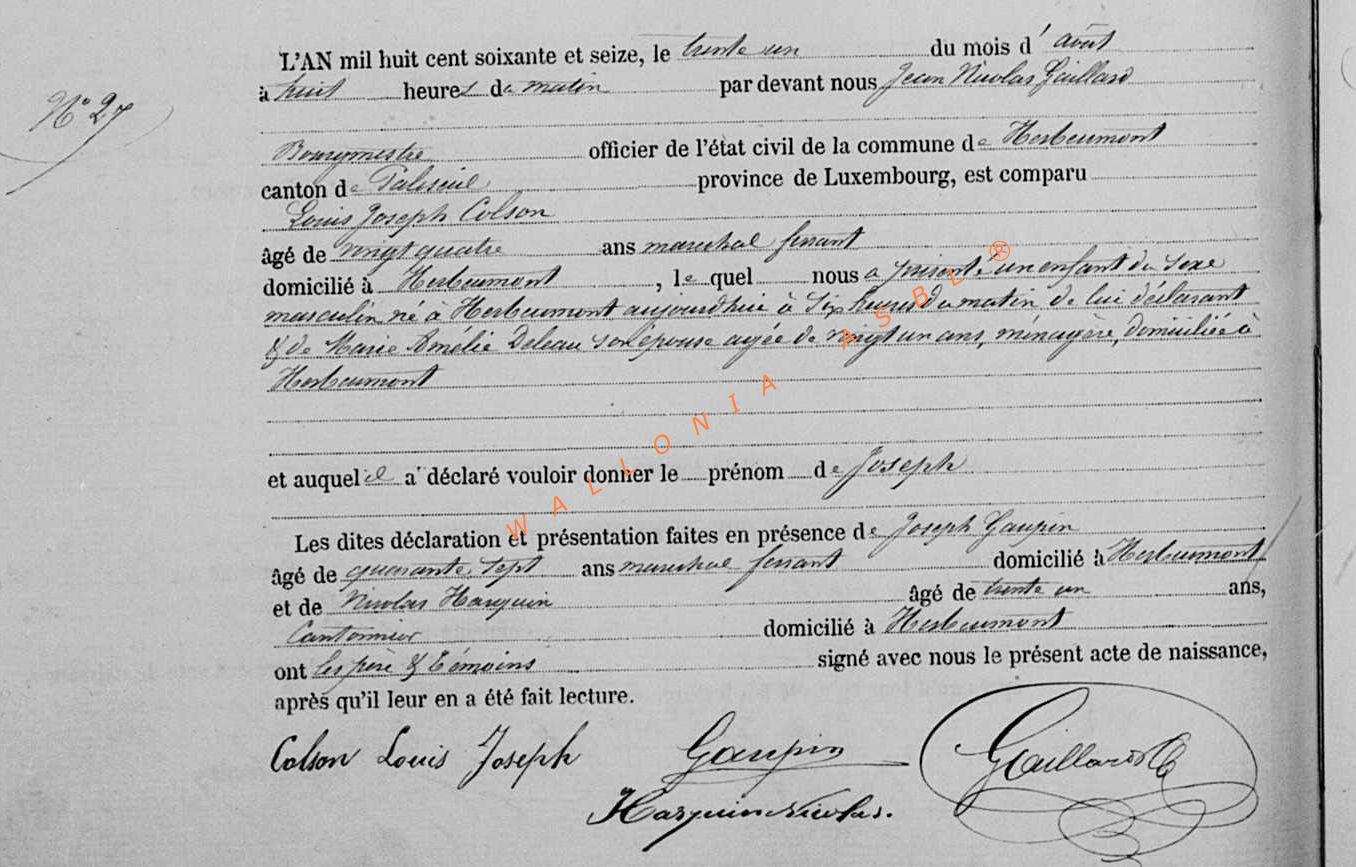 N° 27
L'AN mil huit cent soixante et seize, le trente un du mois d'août
à huit heures de matin par devant nous Jean Nicolas Gaillard
Bourgmestre officier de l'état civil de la commune de Herbeumont
canton de Paliseul province de Luxembourg, est comparu
Louis Joseph Colson
âgé de vingt quatre ans marechal ferrant
domicilié à Herbeumont, le quel nous a présenté un enfant du sexe
masculin né à Herbeumont aujourdhui à six heures du matin de lui déclarant
& de Marie Amélie Deleau son épouse agée de vingt un ans, ménagère, domiciliée à
Herbeumont
et auquel il a déclaré vouloir donner le prénom de Joseph
Les dites déclaration et présentation faites en présence de Joseph Gaupin
âgé de quarante sept ans marechal ferrant domicilié à Herbeumont
et de Nicolas Hasquin âgé de trente un ans,
Cantonnier domicilié à Herbeumont
ont les père & témoins signé avec nous le présent acte de naissance,
après qu'il leur en a été fait lecture.
Colson Louis Joseph Gaupin Gaillard
Hasquin Nicolas.
WALLONIA ASBL ®